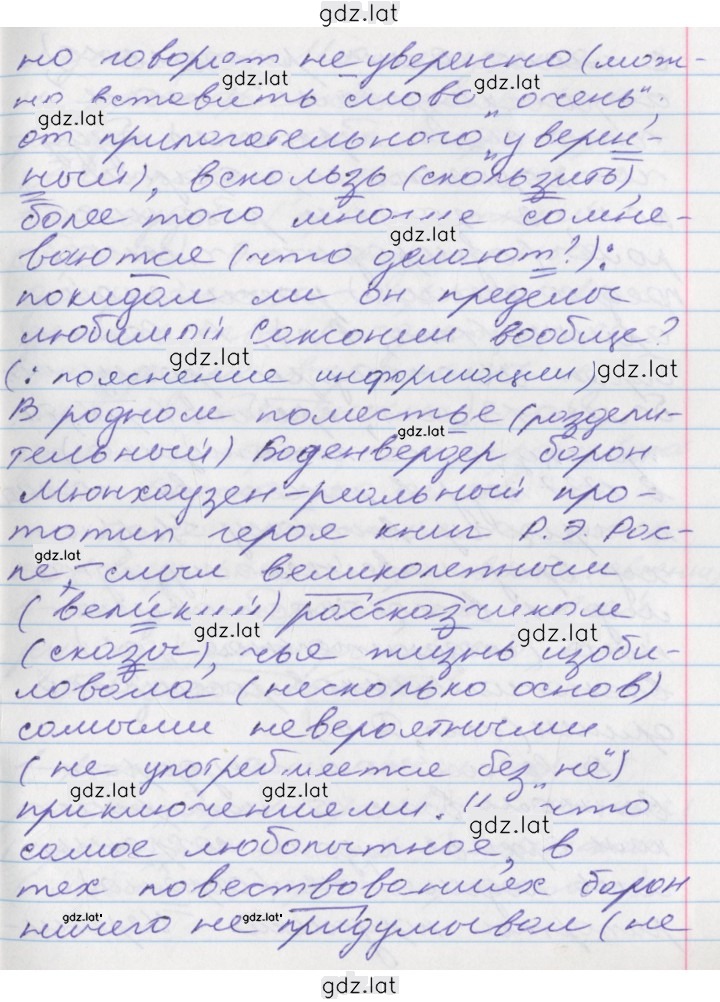 gdz.lat
но говорят не уверенно (мож-
gdz.lat
gdz.lat
но вставить слово „очень",
gdz.lat
от прилагательного „уверен-
ный"), вскользь (скользить),
более того многие сомне-
gdz.lat
ваются (что делают?):
покидал ли он пределы
любимой Саксонии вообще?
gdz.lat
(: пояснение информации)
gdz.lat
В родном поместье (раздели-
gdz.lat
тельный) Боденвердер барон
Мюнхаузен-реальный про-
тотип героя книг Р.Э. Рас-
gdz.lat
пе, - слыл великолепным
(великий) рассказчиком
gdz.lat
gdz.lat
(сказы), чья жизнь изоби-
ловала (несколько основ)
самыми невероятными
(не употребляется без „не")
gdz.lat
gdz.lat
приключениями. И что
gdz.lat
самое любопытное, в
тех повествованиях барон
gdz.lat
gdz.lat
gdz.lat
ничего не придумывал (не
gdz.lat